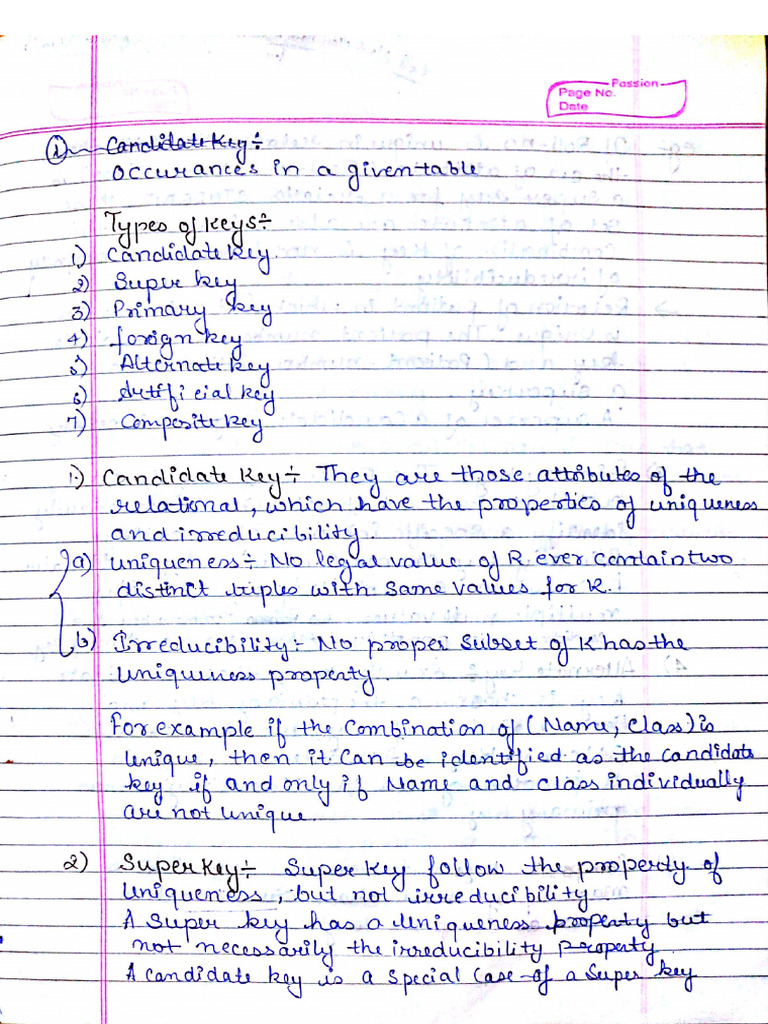 Passion
Page No.
Date
① Candidate Key÷
occurances in a given table
Types of Keys÷
1) Candidate key
2) Super key
3) Primary key
4) foreign key
5) Alternate key
6) Artificial key
7) Composite key
1.) Candidate Key÷ They are those attributes of the
relational, which have the properties of uniqueness
and irreducibility.
a) uniqueness÷ No legal value of R ever contain two
distinct tuples with same values for K.
b) Irreducibility÷ No proper subset of K has the
uniqueness property.
For example if the Combination of (Name, class) is
unique, then it can be identified as the candidate
key if and only if Name and class individually
are not unique.
2) Super Key÷ Super key follow the property of
Uniqueness, but not irreducibility
A super key has a Uniqueness property but
not necessarily the irreducibility property.
A candidate key is a special case of a super key